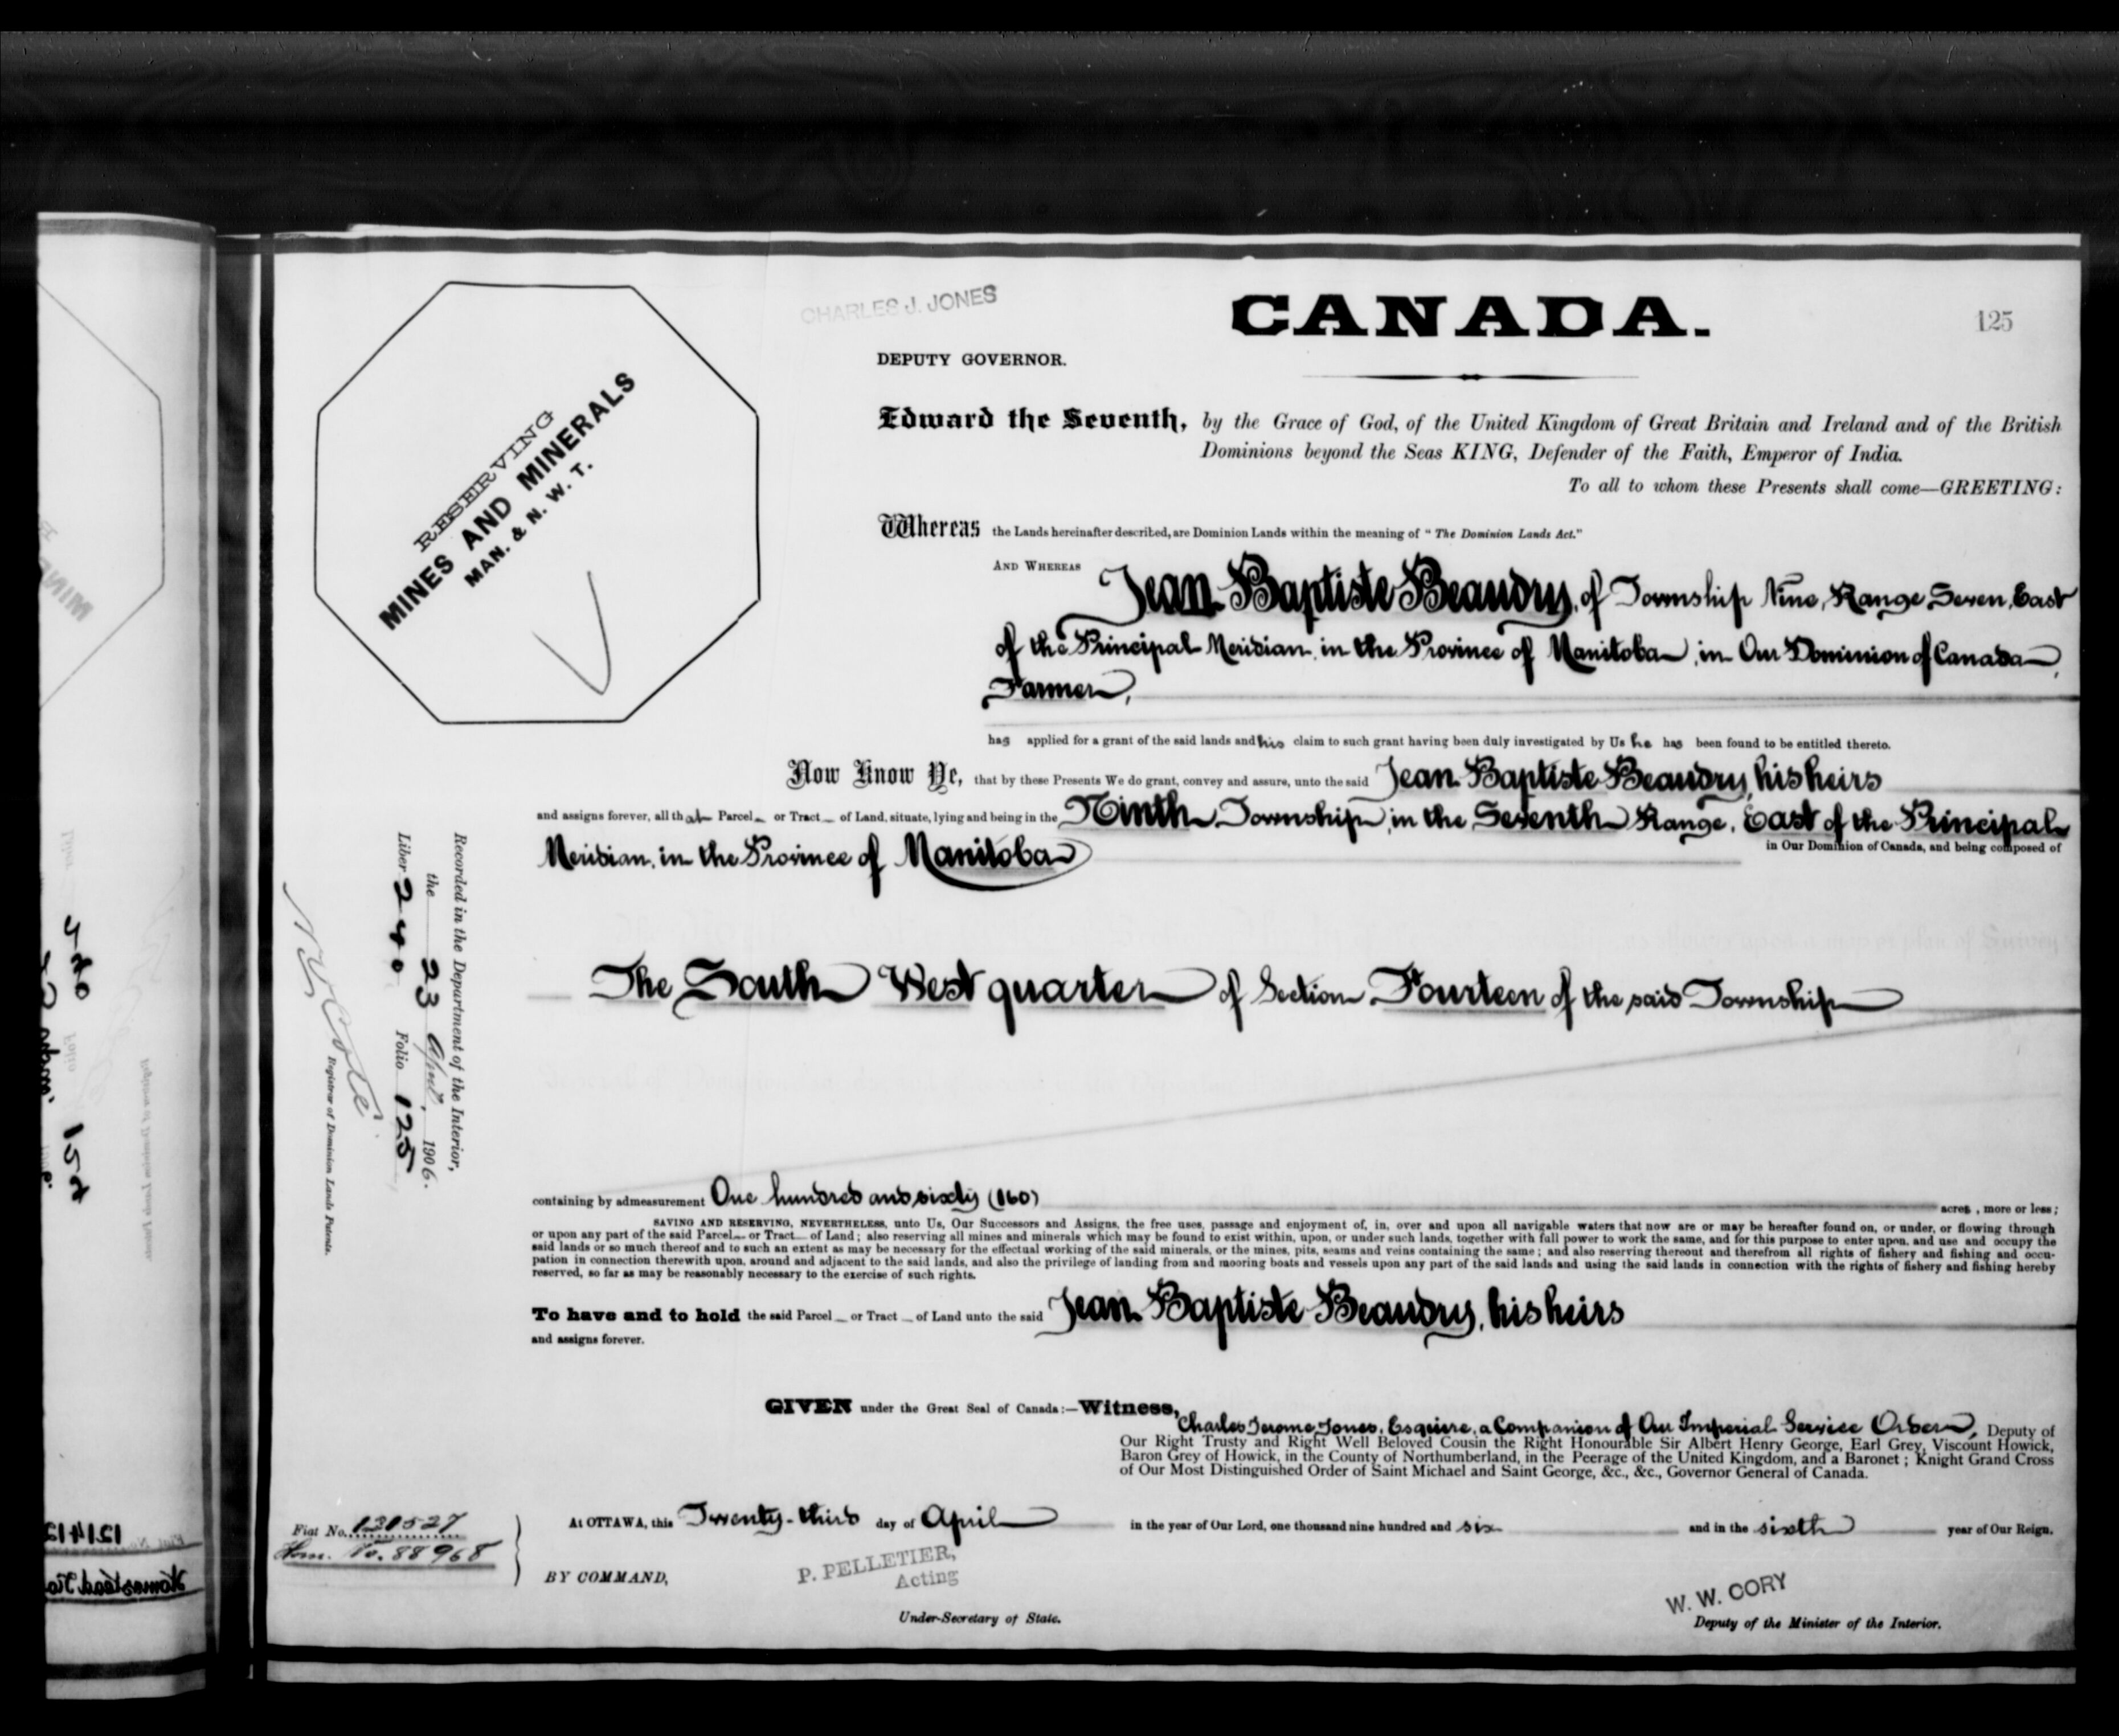 CHARLES J. JONES
CANADA.
125
DEPUTY GOVERNOR.
RESERVING
MINES AND MINERALS
MAN. & N. W. T.
Edward the Seventh, by the Grace of God, of the United Kingdom of Great Britain and Ireland and of the British
Dominions beyond the Seas KING, Defender of the Faith, Emperor of India.
To all to whom these Presents shall come—GREETING:
Whereas the Lands hereinafter described, are Dominion Lands within the meaning of "The Dominion Lands Act."
AND WHEREAS Jean Baptiste Beaudry, of Township Nine, Range Seven, East
of the Principal Meridian, in the Province of Manitoba, in Our Dominion of Canada,
Farmer,
has applied for a grant of the said lands and his claim to such grant having been duly investigated by Us he has been found to be entitled thereto.
Now Know Ye, that by these Presents We do grant, convey and assure, unto the said Jean Baptiste Beaudry, his heirs
and assigns forever, all that Parcel or Tract of Land, situate, lying and being in the Ninth Township, in the Seventh Range, East of the Principal
Meridian, in the Province of Manitoba
in Our Dominion of Canada, and being composed of
The South West quarter of Section Fourteen of the said Township
Recorded in the Department of the Interior,
the 23 April, 1906.
Liber 240 Folio 125
N O Coté
Registrar of Dominion Lands Patents.
containing by admeasurement One hundred and sixty (160) acres, more or less;
SAVING AND RESERVING, NEVERTHELESS, unto Us, Our Successors and Assigns, the free uses, passage and enjoyment of, in, over and upon all navigable waters that now are or may be hereafter found on, or under, or flowing through
or upon any part of the said Parcel or Tract of Land; also reserving all mines and minerals which may be found to exist within, upon, or under such lands, together with full power to work the same, and for this purpose to enter upon, and use and occupy the
said lands or so much thereof and to such an extent as may be necessary for the effectual working of the said minerals, or the mines, pits, seams and veins containing the same; and also reserving thereout and therefrom all rights of fishery and fishing and occu-
pation in connection therewith upon, around and adjacent to the said lands, and also the privilege of landing from and mooring boats and vessels upon any part of the said lands and using the said lands in connection with the rights of fishery and fishing hereby
reserved, so far as may be reasonably necessary to the exercise of such rights.
To have and to hold the said Parcel or Tract of Land unto the said Jean Baptiste Beaudry, his heirs
and assigns forever.
GIVEN under the Great Seal of Canada:—Witness,
Charles Jerome Jones, Esquire, a Companion of Our Imperial Service Order, Deputy of
Our Right Trusty and Right Well Beloved Cousin the Right Honourable Sir Albert Henry George, Earl Grey, Viscount Howick,
Baron Grey of Howick, in the County of Northumberland, in the Peerage of the United Kingdom, and a Baronet; Knight Grand Cross
of Our Most Distinguished Order of Saint Michael and Saint George, &c., &c., Governor General of Canada.
Fiat No. 131527
Hom. No. 88968
At OTTAWA, this Twenty-third day of April in the year of Our Lord, one thousand nine hundred and six and in the sixth year of Our Reign.
BY COMMAND,
P. PELLETIER,
Acting
Under-Secretary of State.
W. W. CORY
Deputy of the Minister of the Interior.